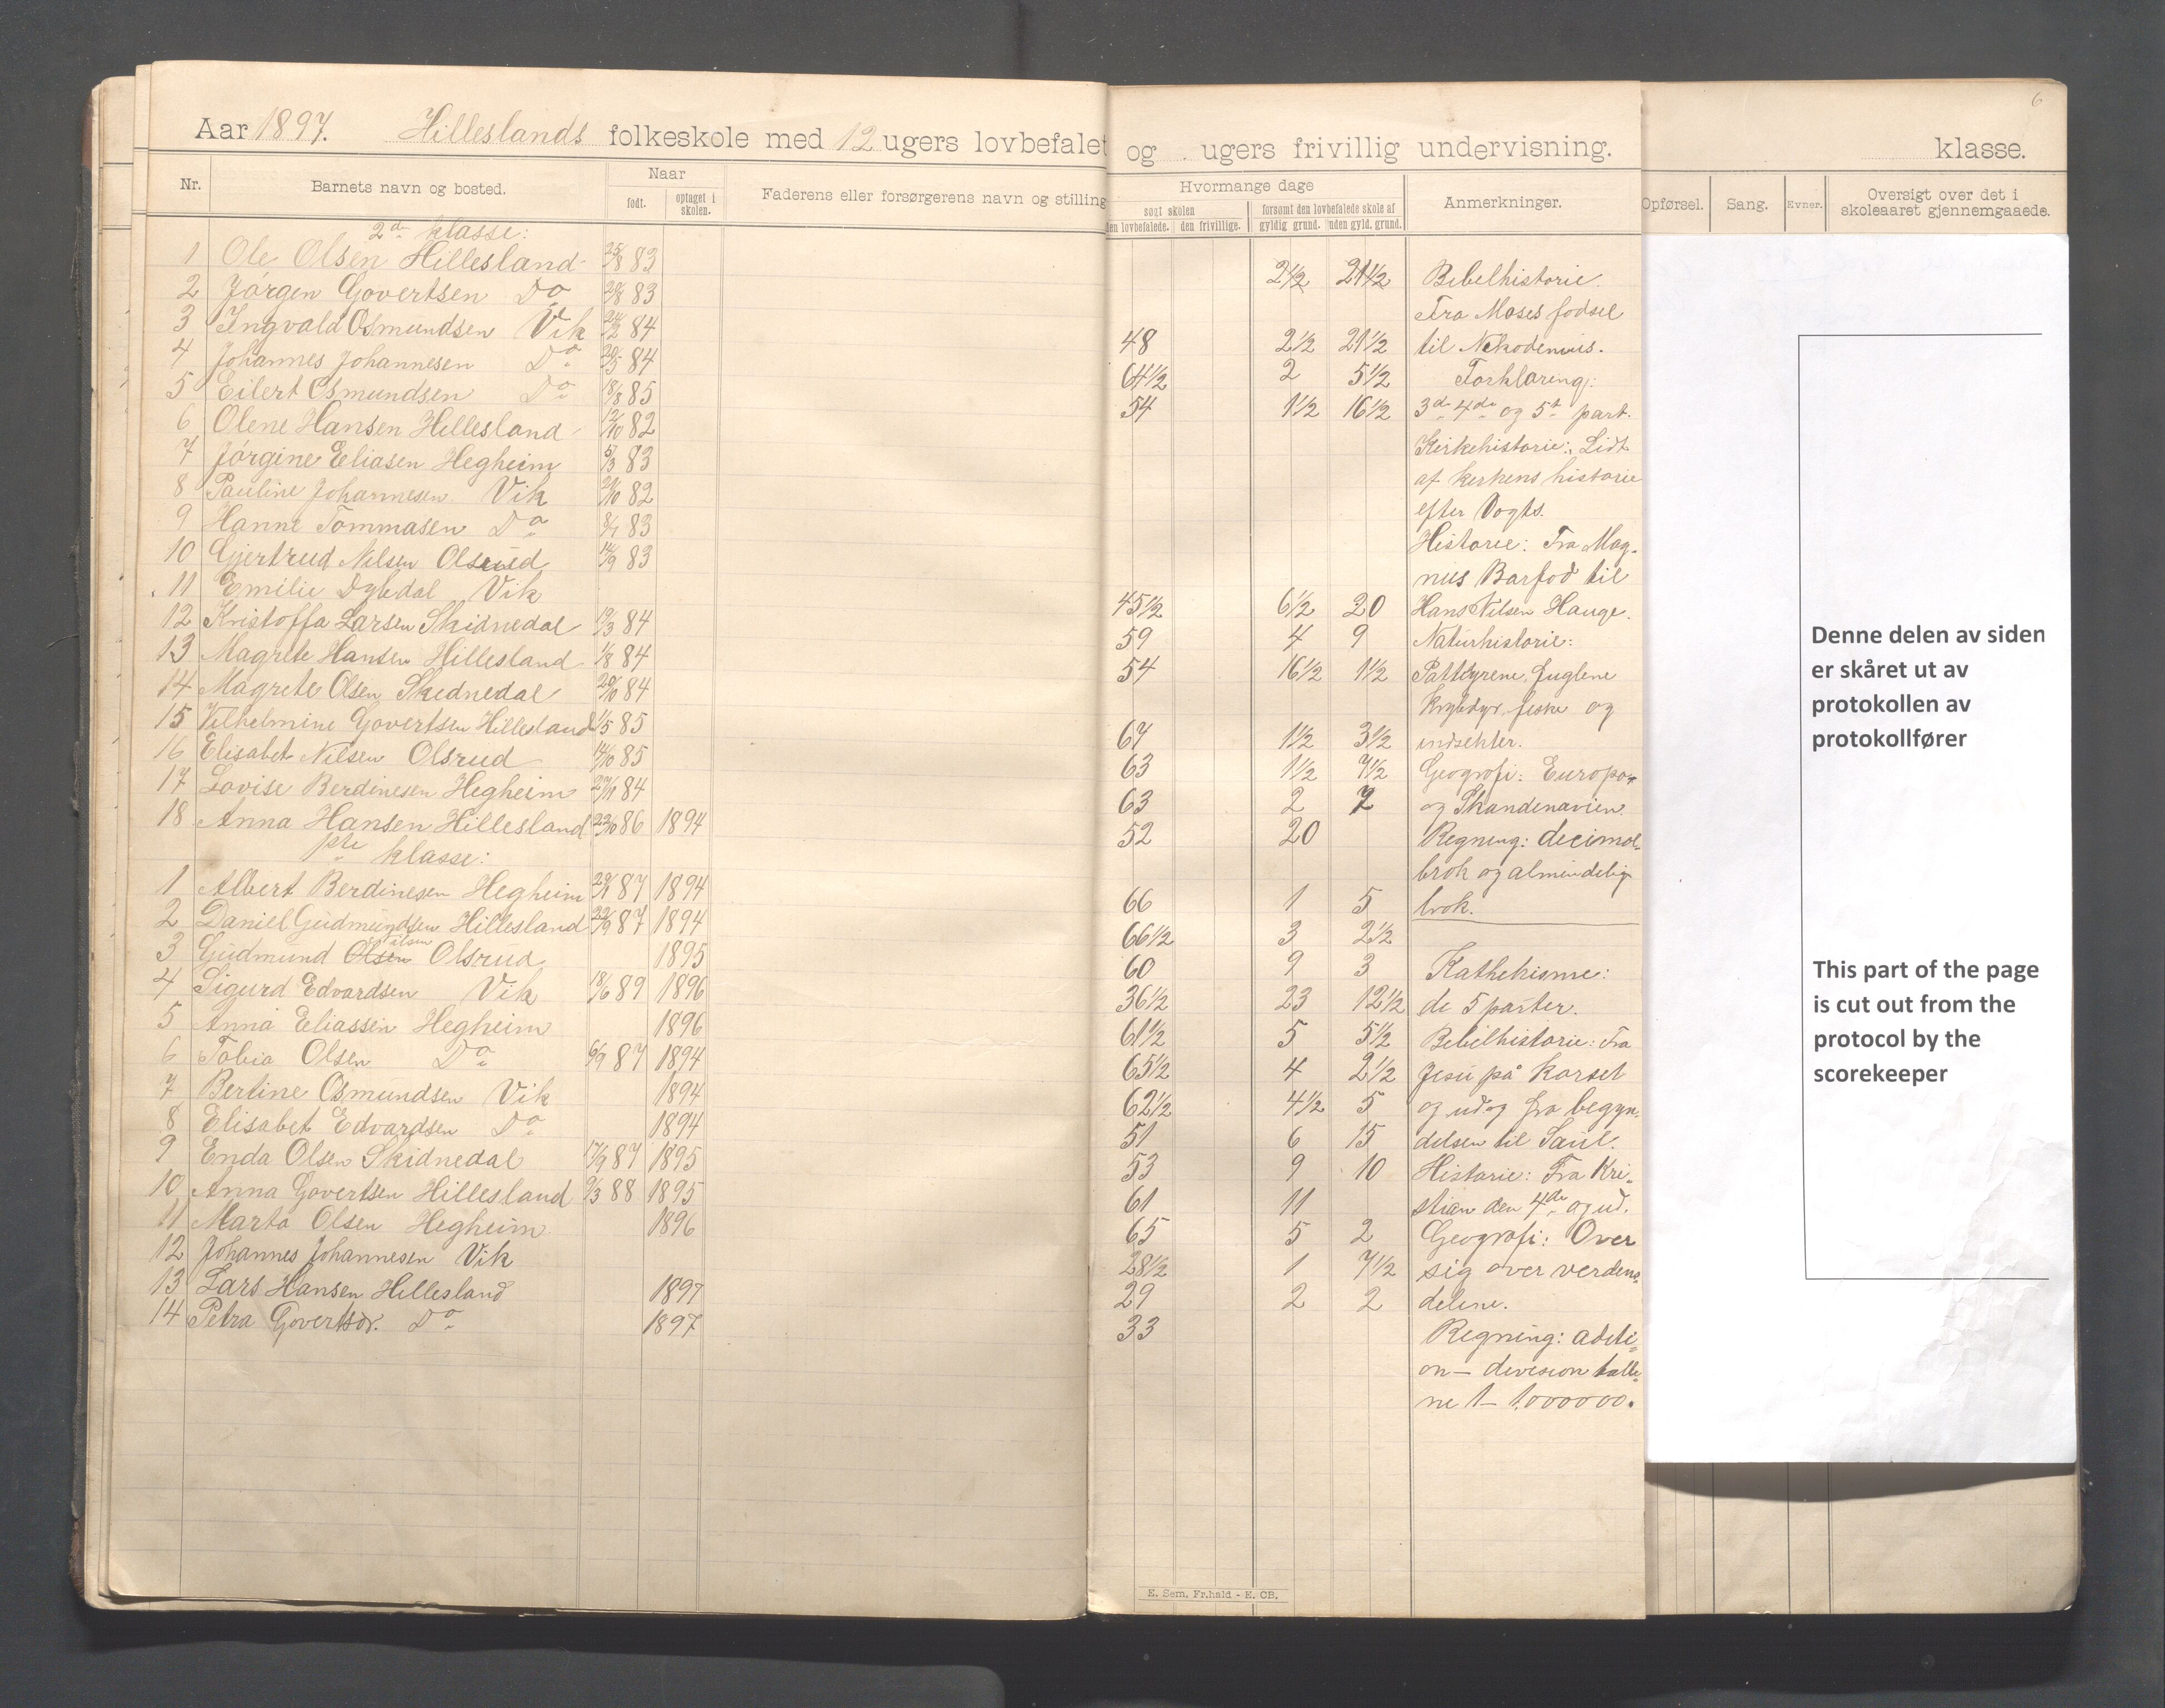 Aar 1897. Hilleslands folkeskole med 12 ugers lovbefalet
Nr. Barnets navn og bosted. Naar Faderens eller forsørgerens navn og stilling
født. optaget i skolen.
2de klasse:
1 Ole Olsen Hillesland 25/8 83
2 Jørgen Govertsen Do 20/8 83
3 Ingvald Osmundsen Vik 24/2 84
4 Johannes Johannesen Do 20/5 84
5 Eilert Osmundsen Do 18/8 85
6 Olene Hansen Hillesland 12/10 82
7 Jørgine Eeliasen Hegheim 5/3 83
8 Pauline Johannesen Vik 21/10 82
9 Hanne Tommasen Do 8/1 83
10 Gjertrud Nilsen Olsrud 14/9 83
11 Emilie Dybdal Vik
12 Kristoffa Larsen Skidnedal 19/3 84
13 Magrete Hansen Hillesland 1/8 84
14 Magrete Olsen Skidnedal 20/10 84
15 Vilhelmine Govertsen Hillesland 1/5 85
16 Elisabet Nilsen Olsrud 14/10 85
17 Lovise Berdinesen Hegheim 27/11 84
18 Anna Hansen Hillesland 22/10 86 1894
1ste klasse:
1 Albert Berdinesen Hegheim 29/1 87 1894
2 Daniel Gudmundsen Hillesland 22/9 87 1894
3 Gudmund Olsen Nilsen Olsrud 1895
4 Sigurd Edvardsen Vik 18/6 89 1896
5 Anna Eeliassen Hegheim 1896
6 Tobia Olsen Do 6/9 87 1894
7 Bertine Osmundsen Vik 1894
8 Elisabet Edvardsen Do 1894
9 Enda Olsen Skidnedal 17/9 87 1895
10 Anna Govertsen Hillesland 9/3 88 1895
11 Marta Olsen Hegheim 1896
12 Johannes Johannesen Vik
13 Lars Hansen Hillesland 1897
14 Petra Govertsdr. Do 1897
og ugers frivillig undervisning.
Hvormange dage Anmerkninger.
søgt skolen forsømt den lovbefalede skole af
den lovbefalede. den frivillige. gyldig grund. uden gyld. grund.
2 1/2 21 1/2 Bibelhistorie.
Fra Moses fødsel
48 2 1/2 21 1/2 til Nikodemus.
64 1/2 2 5 1/2 Forklaring:
54 1 1/2 16 1/2 3de 4de og 5te part.
Kirkehistorie: Lidt
af kirkens historie
efter Vogts.
Historie: Fra Mag-
nus Barfod til
45 1/2 6 1/2 20 Hans Nilsen Hauge.
59 4 9 Naturhistorie:
54 16 1/2 1 1/2 Pattedyrene, fuglene
krybdyr, fiske og
67 1 1/2 3 1/2 insekter.
63 1 1/2 7 1/2 Geografi: Europa
63 2 7 og Skandenavien.
52 20 Regning: decimal-
brøk og almindelig
66 1 5 brøk.
66 1/2 3 2 1/2
60 9 3 Kathekisme:
36 1/2 23 12 1/2 de 5 parter.
61 1/2 5 5 1/2 Bibelhistorie: Fra
65 1/2 4 2 1/2 Jesu på korset
62 1/2 4 1/2 5 og ud og fra begyn-
51 6 15 delsen til Saul.
53 9 10 Historie: Fra Kri-
61 11 stian den 4de og ud.
65 5 2 Geografi: Over
28 1/2 1 7 1/2 sig over verdens-
29 2 2 delene.
33 Regning: aditi-
on - devision talle-
ne 1 - 1,000000.
E. Sem, Fr.hald - E. CB.
6
klasse.
Opførsel. Sang. Evner. Oversigt over det i
skoleaaret gjennemgaaede.
Denne delen av siden
er skåret ut av
protokollen av
protokollfører
This part of the page
is cut out from the
protocol by the
scorekeeper